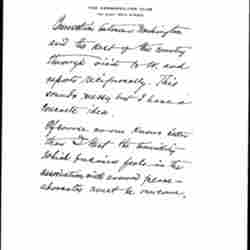 THE COSMOPOLITAN CLUB
Connection between Washington
and the rest of the country
through visits to it, and
reports reciprocally. This
sounds messy but I have a
concrete idea.
Of course no one knows better
than I that the
which business feels in the
association with
must be overcome,